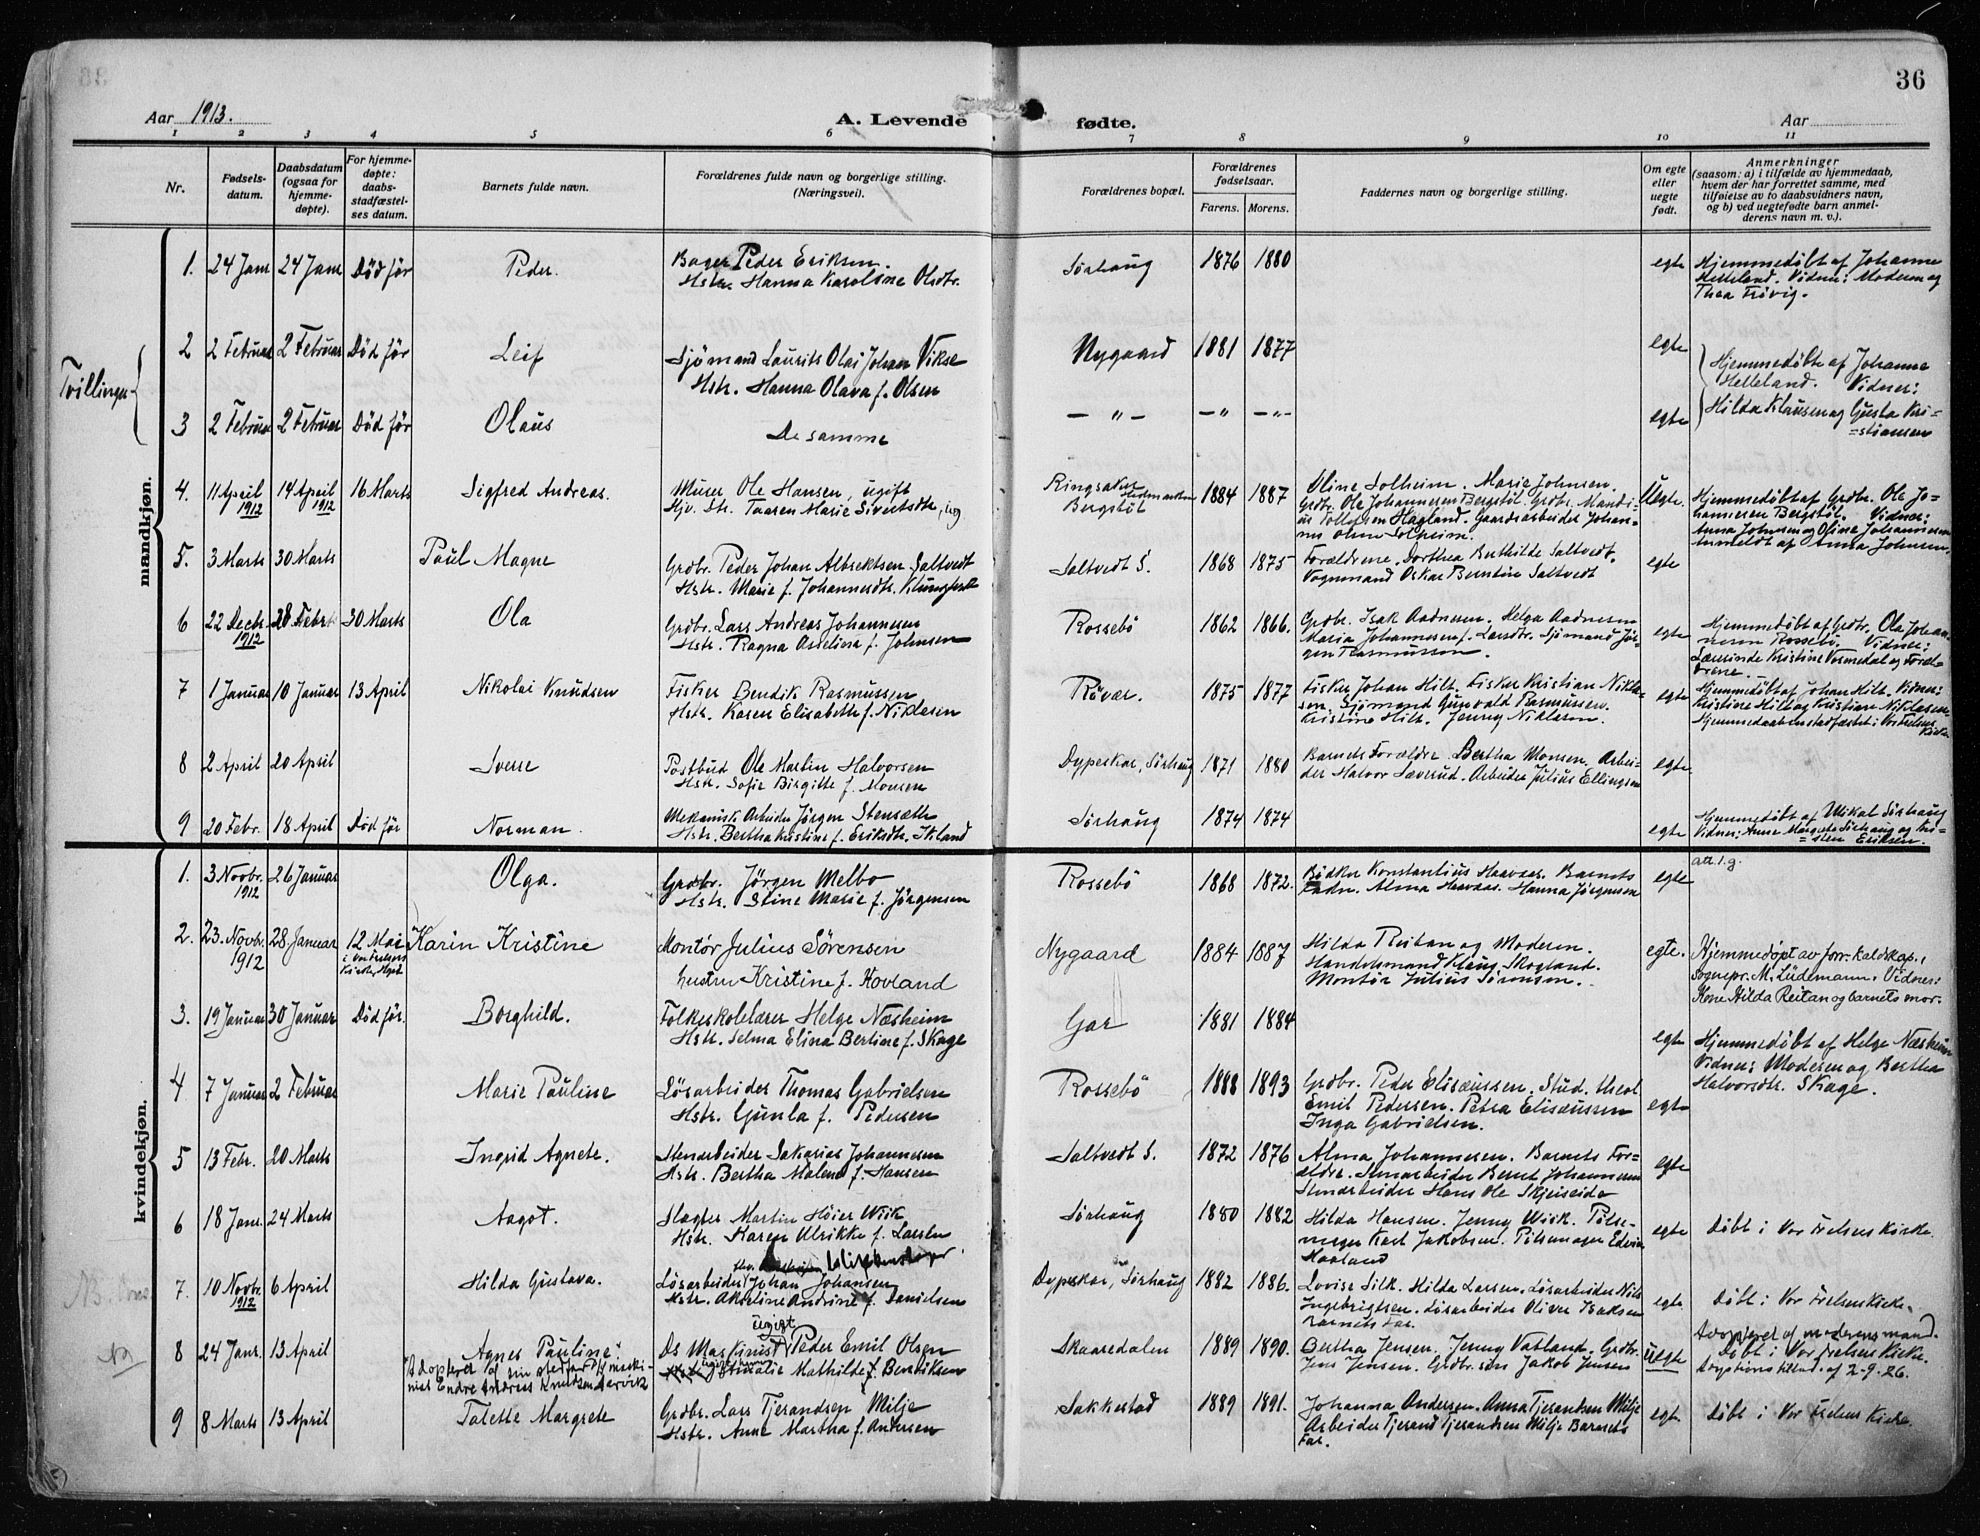 36
Aar 1913.
A. Levende fødte.
Aar
1 2 3 4 5 6 7 8 9 10 11
Nr.
Fødsels-
datum.
Daabsdatum
(ogsaa for
hjemme-
døpte).
For hjemme-
døpte:
daabs-
stadfæstel-
ses datum.
Barnets fulde navn.
Forældrenes fulde navn og borgerlige stilling.
(Næringsvei).
Forældrenes bopæl.
Forældrenes
fødselsaar.
Farens. Morens.
Faddernes navn og borgerlige stilling.
Om egte
eller
uegte
født.
Anmerkninger
(saasom: a) i tilfælde av hjemmedaab,
hvem der har forrettet samme, med
tilføielse av to daabsvidners navn,
og b) ved uegtefødte barn anmel-
derens navn m. v.).
mandkjøn.
1. 24 Janr 24 Janr Død før Peder.
Bager Peder Eriksen.
Hstr. Hanna Karoline Olsdtr.
Sørhaug 1876 1880 egte
Hjemmedøbt af Johanne
Helleland. Vidner: Moderen og
Thea Frøvig.
Tvillinger
2 2 Februar 2 Februar Død før Leif
Sjømand Laurits Olai Johan Vikse
Hstr. Hanna Olava f. Olsen
Nygaard 1881 1877 egte
Hjemmedøbt af Johanne
Helleland. Vidner:
Hilda Klausen og Gusta Kri=
=stiansen
3 2 Februar 2 Februar Død før Olaus
De samme
— " — — " — " — egte
4. 11 April 1912 14 April 1912 16 Marts Sigfred Andreas.
Murer Ole Hansen, ugift
Hjv. Str. Taaren Marie Sivertsdtr, ug
Ringsaker Hedmarken
Bergstøl
1884 1887
Oline Solheim. Marie Johnsen.
Grdbr. Ole Johannesen Bergstøl. Grdbr. Mandi-
us Tollefsen Hagland. Gaardsarbeider Johan-
nes Olsen Solheim.
Uegte.
Hjemmedøbt af Grdbr. Ole Jo=
hannesen Bergstøl. Vidner:
Anna Johnsen og Oline Johannesen
Anmeldt af Anna Johnsen.
5. 3 Marts 30 Marts Paul Magne
Grdbr. Peder Johan Albrektsen Saltvedt
Hstr. Marie f. Johannesdtr.
Saltvedt S. 1868 1875
Forældrene. Dorthea Berthilde Saltvedt.
Vognmand Oskar Berntin Saltvedt
egte
6 22 Decbr. 1912 28 Febr 30 Marts Ola
Grdbr. Lars Andreas Johannesen
Hstr. Ragna Asteline f. Johnsen
Rossebö 1862 1866.
Grdbr. Isak Aadnesen. Helga Aadnesen
Maria Johannesen f. Larsdtr. Sjömand Jør-
gen Rasmussen.
egte
Hjemmedøbt af Grdbr. Ola Johan-
nesen Rossebö. Vidner:
Lærerinde Kristine Vormedal og Foræl-
drene.
7 1 Januar 10 Januar 13 April Nikolai Knudsen
Fisker Bendik Rasmussen
Hstr. Karen Elisabeth f. Niklasen
Røvær. 1875 1877
Fisker Johan Hilt. Fisker Kristian Nikla-
sen. Sjömand Gunvald Rasmussen.
Kristine Hilt. Jenny Niklasen.
egte
Hjemmedøbt af Johan Hilt. Vidner:
Kristine Hilt og Kristian Niklasen
Hjemmedaaben stadfæstet i Vor Frelsers
Kirke
8 2 April 20 April Sverre
Postbud Ole Martin Halvorsen
Hstr. Sofie Birgitte f. Monsen
Dypeskar, Sørhaug 1871 1880
Barnets Forældre. Bertha Monsen. Arbei-
der Halvor Sæverud. Arbeider Julius Ellingsen
egte
9 20 Febr. 18 April Død før Norman.
Mekanisk Arbeider Jørgen Stensæth
Hstr. Bertha Kristine f. Eriksdtr.
Sørhaug 1874 1874 egte
Hjemmedøbt af Mikal Sørhaug
Vidner: Anne Margrete Sørhaug og Kri-
=sten Eriksen.
kvindekjøn.
1. 3 Novbr. 1912 26 Januar Olga.
Grdbr. Jørgen Melbo
Hstr. Stine Marie f. Jørgensen
Rossebö 1868 1872.
Bødker Konstantius Haavaas. Barnets
Fadr. Alma Haavaas. Hanna Jørgensen
egte
att. l. g.
2. 23. Novbr. 1912 28 Januar 12 Mai
i Vor Frelsers
Kirke,
Karin Kristine
Montør Julius Sörensen
hustru Kristine f. Hovland
Nygaard 1884 1887
Hilda Reitan og Moderen.
Handelsmand Skogland.
Montør Julius Sørensen.
egte.
Hjemmedøpt av forr. kaldskap.,
Sognepr. M. Lüdemann. Vidner:
Kone Hilda Reitan og barnets mor.
3. 19 Januar 30 Januar Død før. Borghild.
Folkeskolelærer Helge Næsheim
Hstr. Selma Elina Bertine f. Skage
Gar 1881 1884 egte
Hjemmedøbt af Helge Næsheim
Vidner: Moderen og Bertha
Halvorsdtr. Skage.
4 7 Januar 2 Februar Marie Pauline
Løsarbeider Thomas Gabrielsen
Hstr. Gunla f. Pedersen
Rossebö 1888 1893
Grdbr. Peder Elisæussen. Stud. theol
Emil Pedersen. Petra Elisæussen
Inga Gabrielsen.
egte
5 13 Febr. 20 Marts Ingrid Agnete.
Stenarbeider Sakarias Johannesen
Hstr. Bertha Malene f. Hansen
Saltvedt S. 1872 1876
Alma Johannesen. Barnets For=
ældre. Stenarbeider Bernt Johannesen
Stenarbeider Hans Ole Skjeiseide
egte
6 18 Janr. 24 Marts Aagot.
Slagter Martin Høier Wiik
Hstr. Karen Ulrikke f. Larsen
Sørhaug 1880 1882
Hilda Hansen. Jenny Wiik. Pølse-
mager Karl Jakobsen. Pølsemager Edvin
Haaland
egte
Døbt i Vor Frelsers Kirke.
7. 10 Novbr. 1912 6 April Hilda Gustava.
Løsarbeider Johan Johansen
Hstr. Akseline Andrine f. Danielsen
Dypeskar, Sørhaug 1882 1886.
Lovise Silk. Hilda Larsen. Løsarbeider Nils
Ingebrigtsen. Løsarbeider Oliver Isaksen
Barnets Far.
egte
Døbt i Vor Frelsers Kirke.
8 24 Janr. 13 April Agnes Pauline
"Adopteret af sin stedfar maski-
nist Endre Andreas Knudsen Aarvik
ugift
Ds Maskinist Peder Emil Olsen
Amalie Mathilde f. Bentiksen
Skaaredalen 1889 1890.
Bertha Jensen. Jenny Vatland. Grdbr.
Jens Jensen. Grdbr. søn Jakob Jensen
uegte
Adopteret af moderens mand.
Døbt i Vor Frelsers Kirke.
af 2-9-26.
9 8 Marts 13 April Talette Margrete
Grdbr. Lars Tjerandsen Milje
Hstr. Anne Martha f. Andersen
Sakkestad 1889 1891.
Johanna Andersen. Anna Tjerandsen Milje
Arbeider Tjerand Tjerandsen Milje Barnets
Far.
egte
Døbt i Vor Frelsers Kirke.